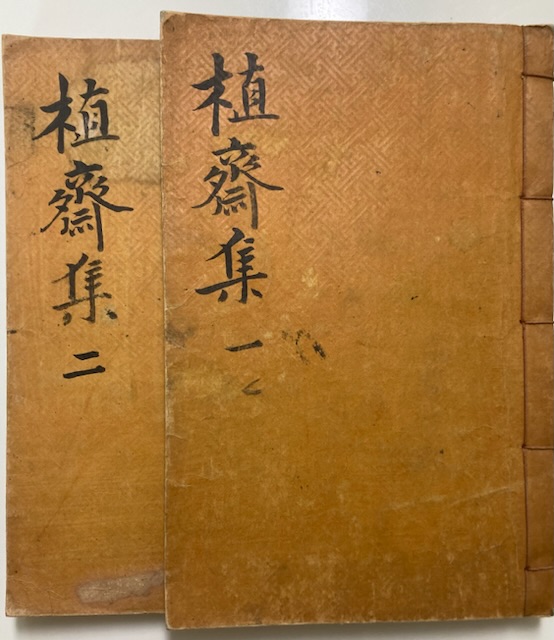 植齋集一
植齋集二